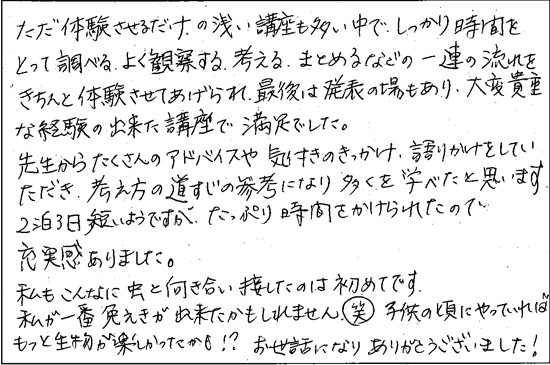 ただ体験させるだけの浅い講座も多い中で、しっかり時間を
とって調べる、よく観察する、考える、まとめるなどの一連の流れを
きちんと体験させてあげられ、最後は発表の場もあり、大変貴重
な経験の出来た講座で満足でした。
先生からたくさんのアドバイスや気付きのきっかけ、語りがけをしてい
ただき、考え方の道すじの参考になり多くを学べたと思います。
2泊3日短いようですが、たっぷり時間をかけられたので
充実感ありました。
私もこんなに虫と向き合い接したのは初めてです。
私が一番免えきが出来たかもしれません。(笑) 子供の頃にやっていれば
もっと生物が楽しかったかも!? お世話になりありがとうございました!